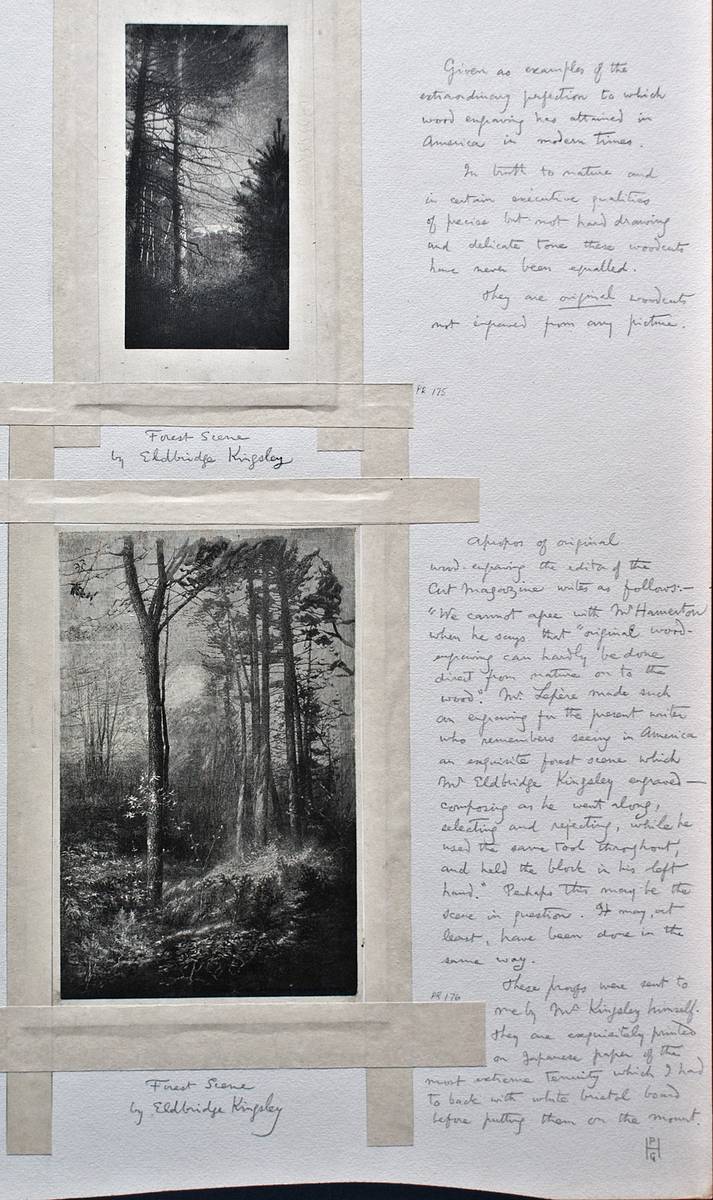 Given as examples of the
extraordinary perfection to which
wood engraving has attained in
America in modern times.
In truth to nature and
in certain executive qualities
of precise but not hard drawing
and delicate tone these woodcuts
have never been equalled.
They are original woodcuts
not engraved from any picture.
PR 175
Forest Scene
by Eldbridge Kingsley
Apropos of original
wood-engraving the editor of the
Art Magazine writes as follows:—
"We cannot agree with Mr Hamerton
when he says that "original wood-
engraving can hardly be done
direct from nature on to the
wood." Mr. Lepère made such
an engraving for the present writer
who remembers seeing in America
an exquisite forest scene which
Mr Eldbridge Kingsley engraved—
composing as he went along,
selecting and rejecting, while he
used the same tool throughout,
and held the block in his left
hand." Perhaps this may be the
scene in question. It may, at
least, have been done in the
same way.
These proofs were sent to
me by Mr Kingsley himself.
They are exquisitely printed
on Japanese paper of the
most extreme tenuity which I had
to back with white bristol board
before putting them on the mount.
PR 176
Forest Scene
by Eldbridge Kingsley
PGH